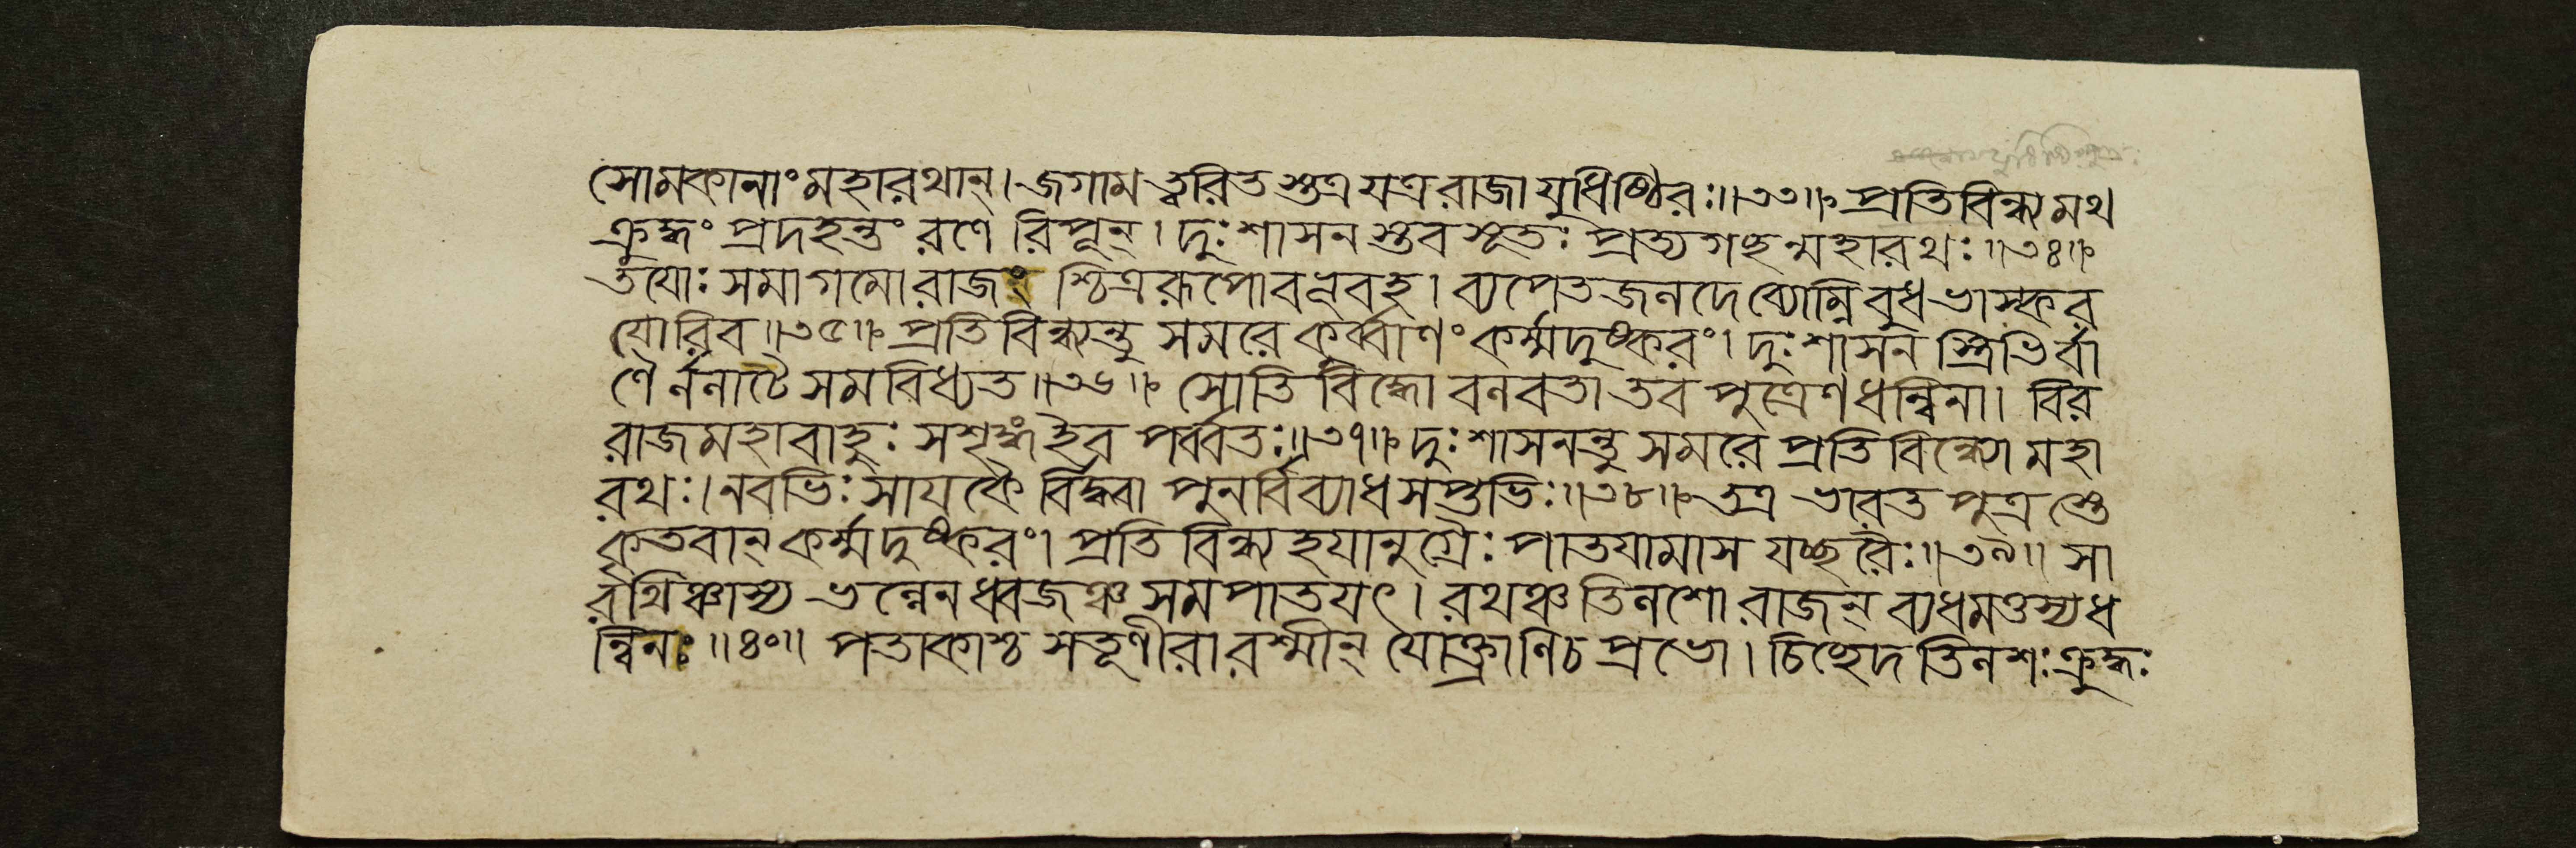 সোমকানাং মহারথান্। জগাম ত্বরিত স্তত্র যত্র রাজা যুধিষ্ঠিরঃ॥৩৩॥ প্রতিবিন্ধ্যমথ
ক্রুদ্ধং প্রদহন্তং রণে রিপূন্। দুঃশাসন স্তব সূতঃ প্রত্যগচ্ছন্মহারথঃ॥৩৪॥
তয়োঃ সমাগমো রাজং শ্চিত্ররূপো বভূবহ। ব্যপেতজলদে ব্যোম্নি বুধভাস্কর
য়োরিব॥৩৫॥ প্রতিবিন্ধ্যন্তু সমরে কুর্ব্বাণং কর্ম্মদুষ্করং। দুঃশাসন স্ত্রিভির্বা
ণৈ র্ললাটে সমবিধ্যত॥৩৬॥ সোতিবিদ্ধো বলবতা তব পুত্রেণ ধন্বিনা। বির
রাজ মহাবাহুঃ সশৃঙ্গ ইব পর্ব্বতঃ॥৩৭॥ দুঃশাসনন্তু সমরে প্রতিবিন্ধ্যো মহা
রথঃ। নবভিঃ সায়কৈ র্বিদ্ধ্বা পুনর্বিব্যাধ সপ্তভিঃ॥৩৮॥ তত্র ভারত পুত্রস্তে
কৃতবান্ কর্ম্মদুষ্করং। প্রতিবিন্ধ্য হয়ানুগ্রৈঃ পাতয়ামাস যচ্ছরৈঃ॥৩৯॥ সা
রথিঞ্চাস্য ভল্লেন ধ্বজঞ্চ সমপাতয়ৎ। রথঞ্চ তিলশো রাজন্ ব্যধমত্তস্য ধ
ন্বিনঃ॥৪০॥ পতাকাশ্চ সতূণীরা রশ্মীন্ যোক্ত্রাণি চ প্রভো। চিচ্ছেদ তিলশঃ ক্রুদ্ধঃ